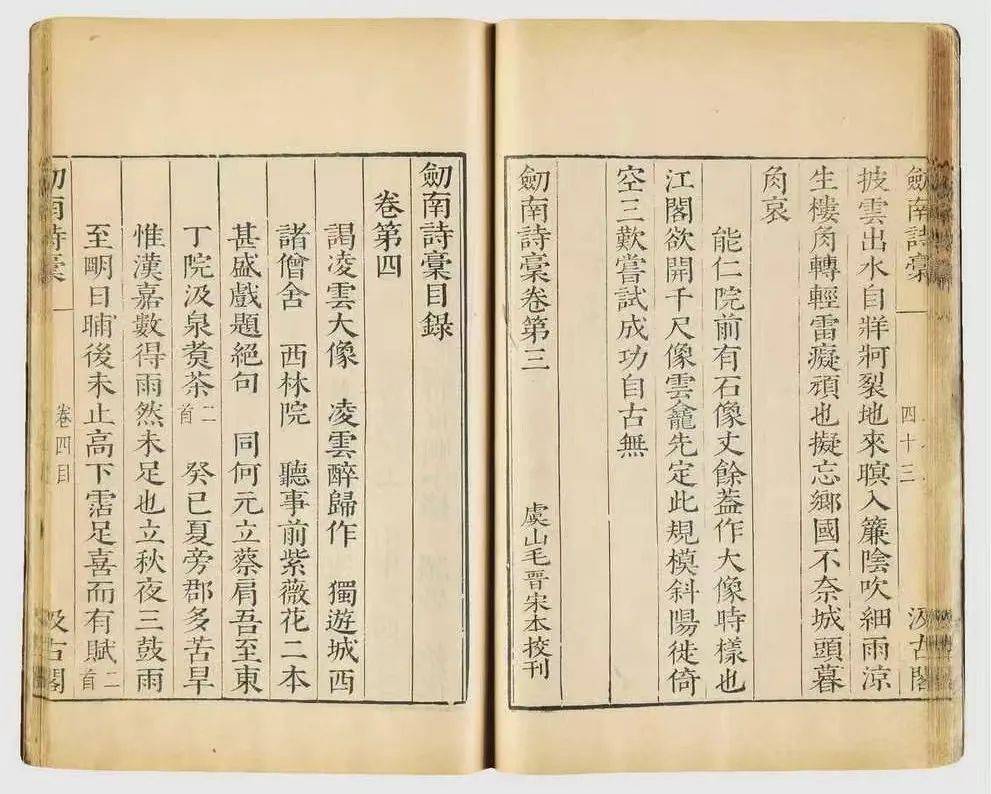 劒南詩稾
四十三
汲古閣
披雲出水自牂牁裂地來暝入簾陰吹細雨涼
生樓角轉輕雷癡頑也擬忘鄉國不奈城頭暮
角哀
能仁院前有石像丈餘葢作大像時樣也
江閣欲開千尺像雲龕先定此規模斜陽徙倚
空三歎嘗試成功自古無
劒南詩稾卷第三
虞山毛晉宋本挍刊
劒南詩稾目録
卷第四
謁凌雲大像 凌雲醉歸作 獨遊城西
諸僧舍 西林院 聽事前紫薇花二本
甚盛戲題絕句 同何元立蔡肩吾至東
丁院汲泉煑茶二首 癸巳夏旁郡多苦旱
惟漢嘉數得雨然未足也立秋夜三鼓雨
至明日晡後未止高下霑足喜而有賦二首
南詩稾
卷四目
一
汲古閣